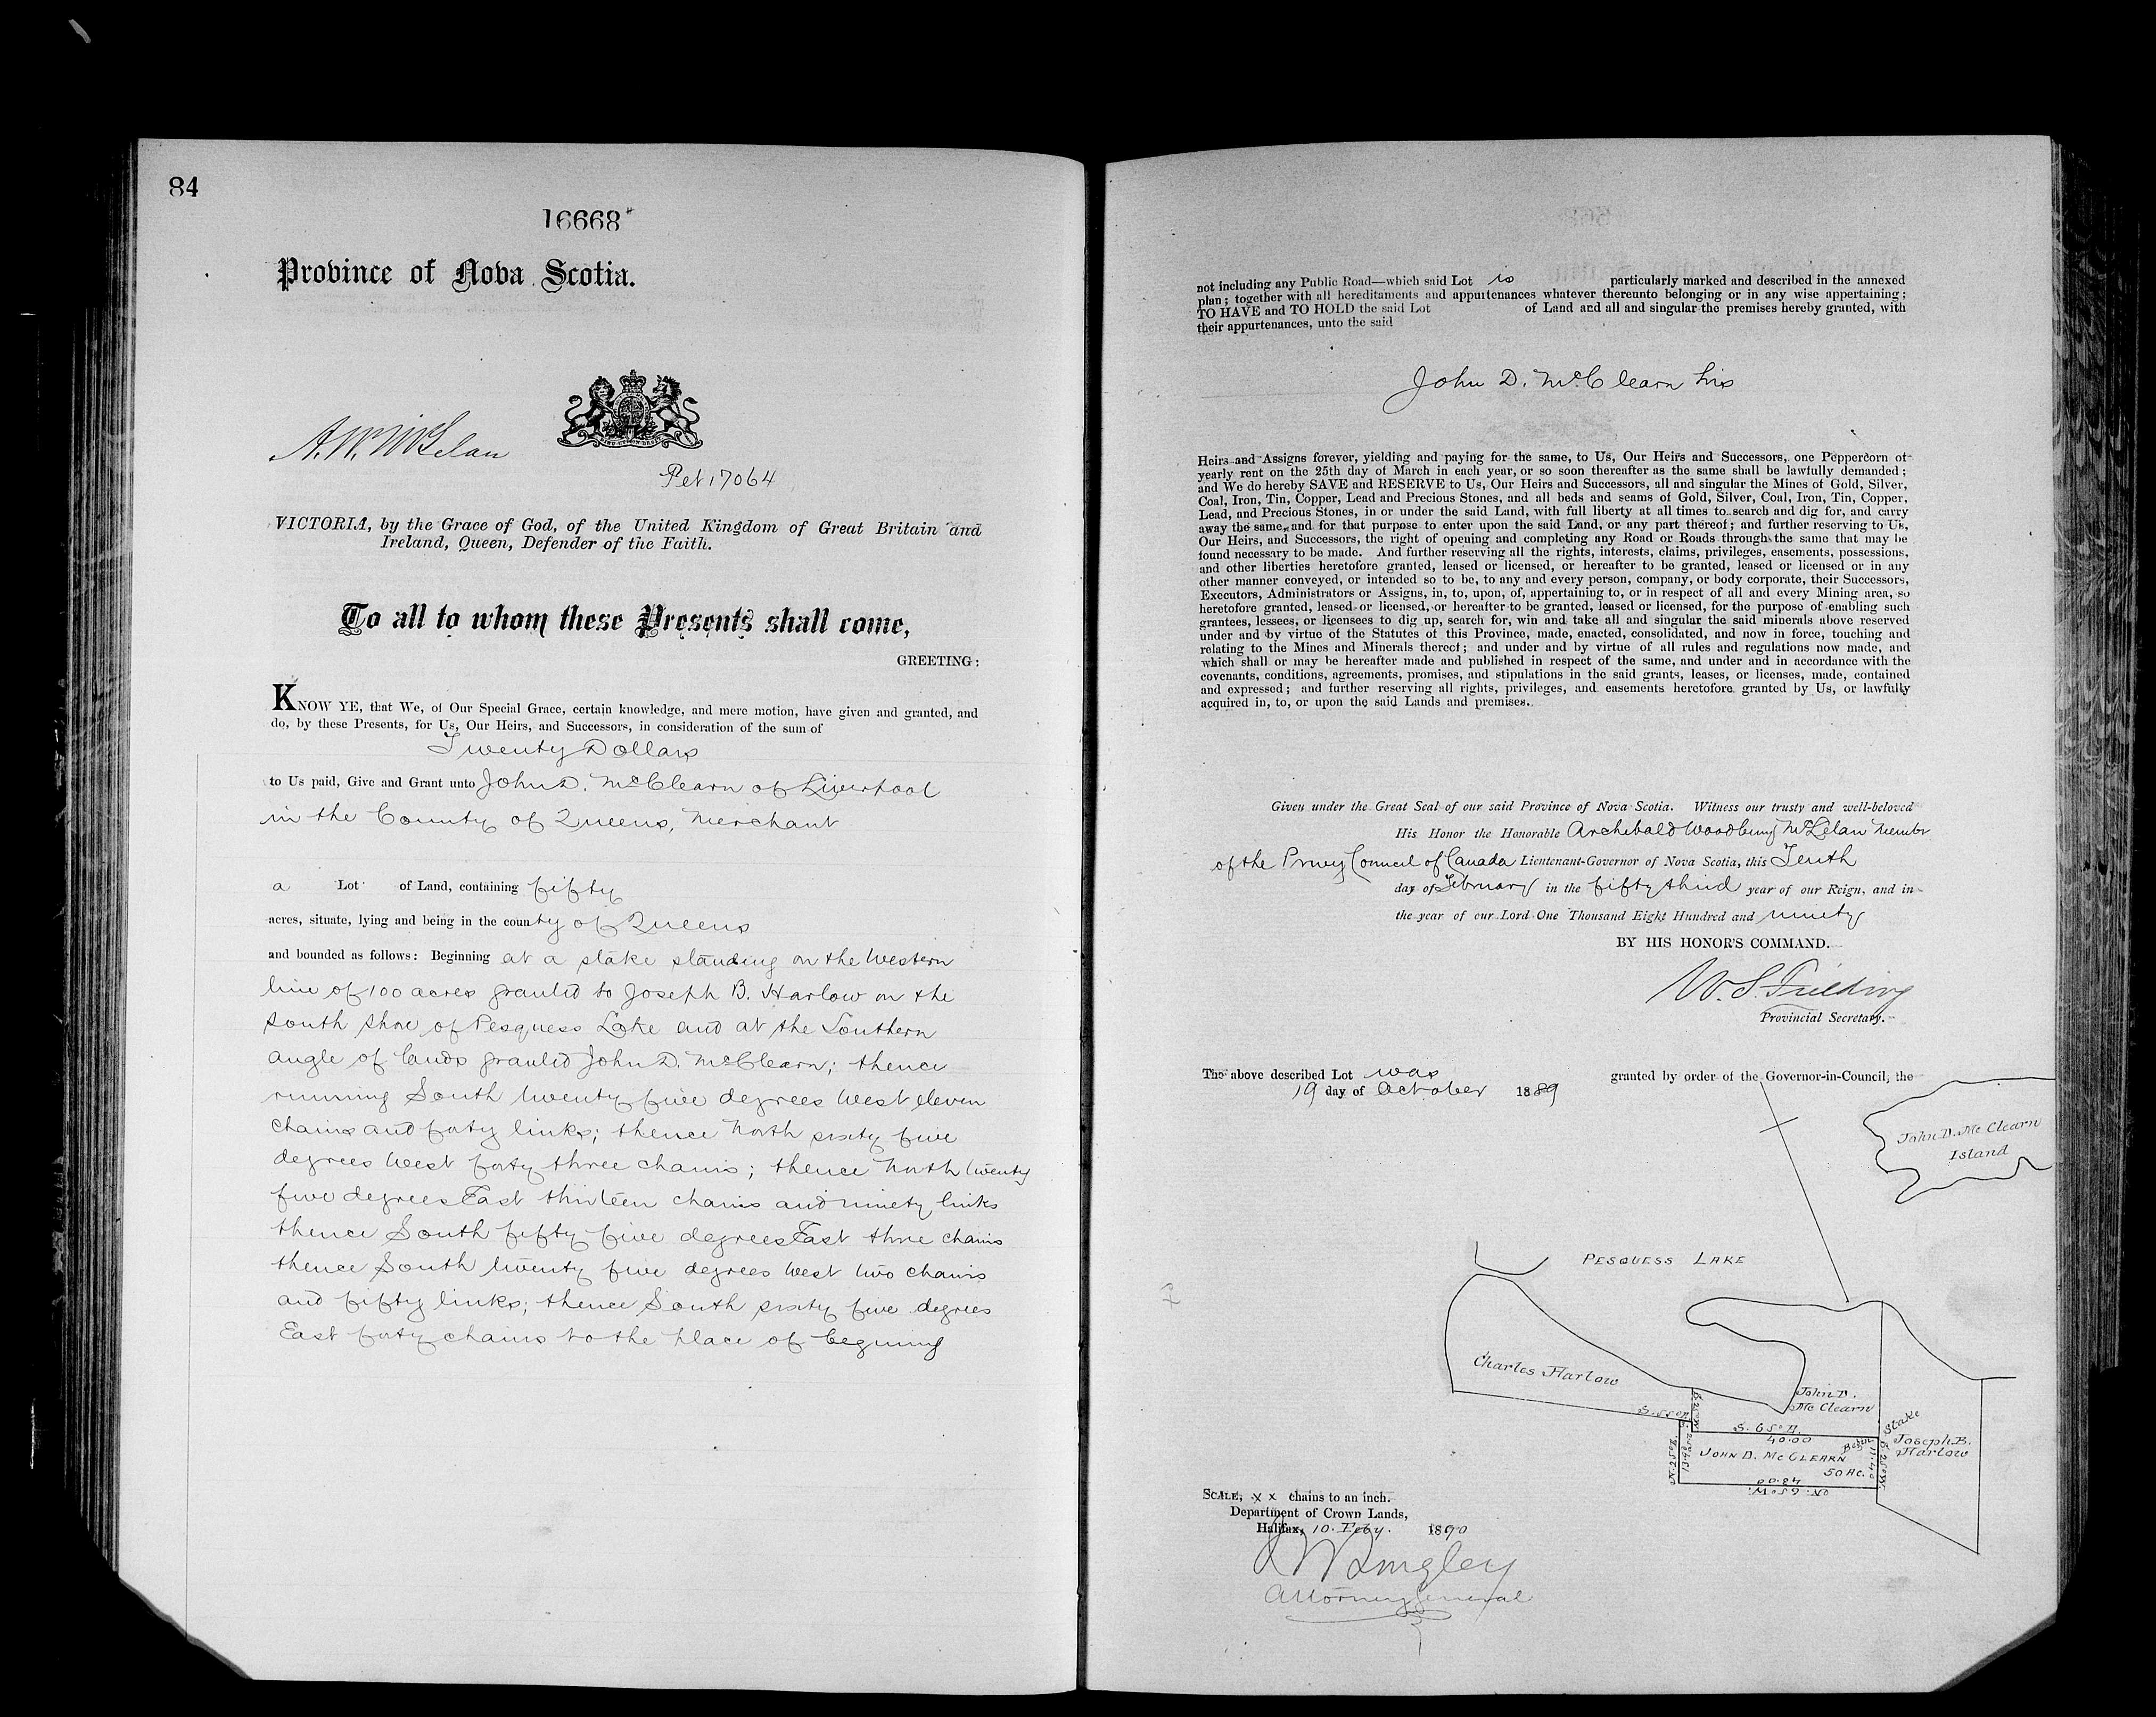 84
16668
Province of Nova Scotia.
A. W. McLelan
Pet 17064
VICTORIA, by the Grace of God, of the United Kingdom of Great Britain and
Ireland, Queen, Defender of the Faith.
To all to whom these Presents shall come,
GREETING:
KNOW YE, that We, of Our Special Grace, certain knowledge, and mere motion, have given and granted, and
do, by these Presents, for Us, Our Heirs, and Successors, in consideration of the sum of
Twenty Dollars
to Us paid, Give and Grant unto John D. McClearn of Liverpool
in the County of Queens, Merchant
a Lot of Land, containing fifty
acres, situate, lying and being in the county of Queens
and bounded as follows: Beginning at a stake standing on the Western
line of 100 acres granted to Joseph B. Harlow on the
South shore of Pesquess Lake and at the Southern
angle of lands granted John D. McClearn; thence
running South twenty five degrees West eleven
chains and forty links; thence North sixty five
degrees West forty three chains; thence North twenty
five degrees East thirteen chains and ninety links
thence South fifty five degrees East three chains
thence South twenty five degrees West two chains
and fifty links; thence South sixty five degrees
East forty chains to the place of begining
not including any Public Road—which said Lot is particularly marked and described in the annexed
plan; together with all hereditaments and appurtenances whatever thereunto belonging or in any wise appertaining;
TO HAVE and TO HOLD the said Lot of Land and all and singular the premises hereby granted, with
their appurtenances, unto the said
John D. McClearn his
Heirs and Assigns forever, yielding and paying for the same, to Us, Our Heirs and Successors, one Peppercorn of
yearly rent on the 25th day of March in each year, or so soon thereafter as the same shall be lawfully demanded;
and We do hereby SAVE and RESERVE to Us, Our Heirs and Successors, all and singular the Mines of Gold, Silver,
Coal, Iron, Tin, Copper, Lead and Precious Stones, and all beds and seams of Gold, Silver, Coal, Iron, Tin, Copper,
Lead, and Precious Stones, in or under the said Land, with full liberty at all times to search and dig for, and carry
away the same, and for that purpose to enter upon the said Land, or any part thereof; and further reserving to Us,
Our Heirs, and Successors, the right of opening and completing any Road or Roads through the same that may be
found necessary to be made. And further reserving all the rights, interests, claims, privileges, easements, possessions,
and other liberties heretofore granted, leased or licensed, or hereafter to be granted, leased or licensed or in any
other manner conveyed, or intended so to be, to any and every person, company, or body corporate, their Successors,
Executors, Administrators or Assigns, in, to, upon, of, appertaining to, or in respect of all and every Mining area, so
heretofore granted, leased or licensed, or hereafter to be granted, leased or licensed, for the purpose of enabling such
grantees, lessees, or licensees to dig up, search for, win and take all and singular the said minerals above reserved
under and by virtue of the Statutes of this Province, made, enacted, consolidated, and now in force, touching and
relating to the Mines and Minerals thereof; and under and by virtue of all rules and regulations now made, and
which shall or may be hereafter made and published in respect of the same, and under and in accordance with the
covenants, conditions, agreements, promises, and stipulations in the said grants, leases, or licenses, made, contained
and expressed; and further reserving all rights, privileges, and easements heretofore granted by Us, or lawfully
acquired in, to, or upon the said Lands and premises.
Given under the Great Seal of our said Province of Nova Scotia. Witness our trusty and well-beloved
His Honor the Honorable Archibald Woodbury McLelan Member
of the Privy Council of Canada Lieutenant-Governor of Nova Scotia, this Tenth
day of February in the fifty third year of our Reign, and in
the year of our Lord One Thousand Eight Hundred and ninety
BY HIS HONOR'S COMMAND.
W. S. Fielding
Provincial Secretary.
The above described Lot was granted by order of the Governor-in-Council, the
19 day of October 1889
John D. Mc Clearn
Island
PESQUESS LAKE
Charles Harlow
John D.
Mc Clearn
S. 55° E.
S. 65° E.
40.00
Stake
Begin
Joseph B.
Harlow
JOHN D. MC CLEARN
50 Ac.
N. 25° E.
13.90
11.40
S. 25° W.
43.00
N. 65° W.
SCALE, x x chains to an inch.
Department of Crown Lands,
Halifax, 10. Feby. 1890
J W Longley
Attorney General